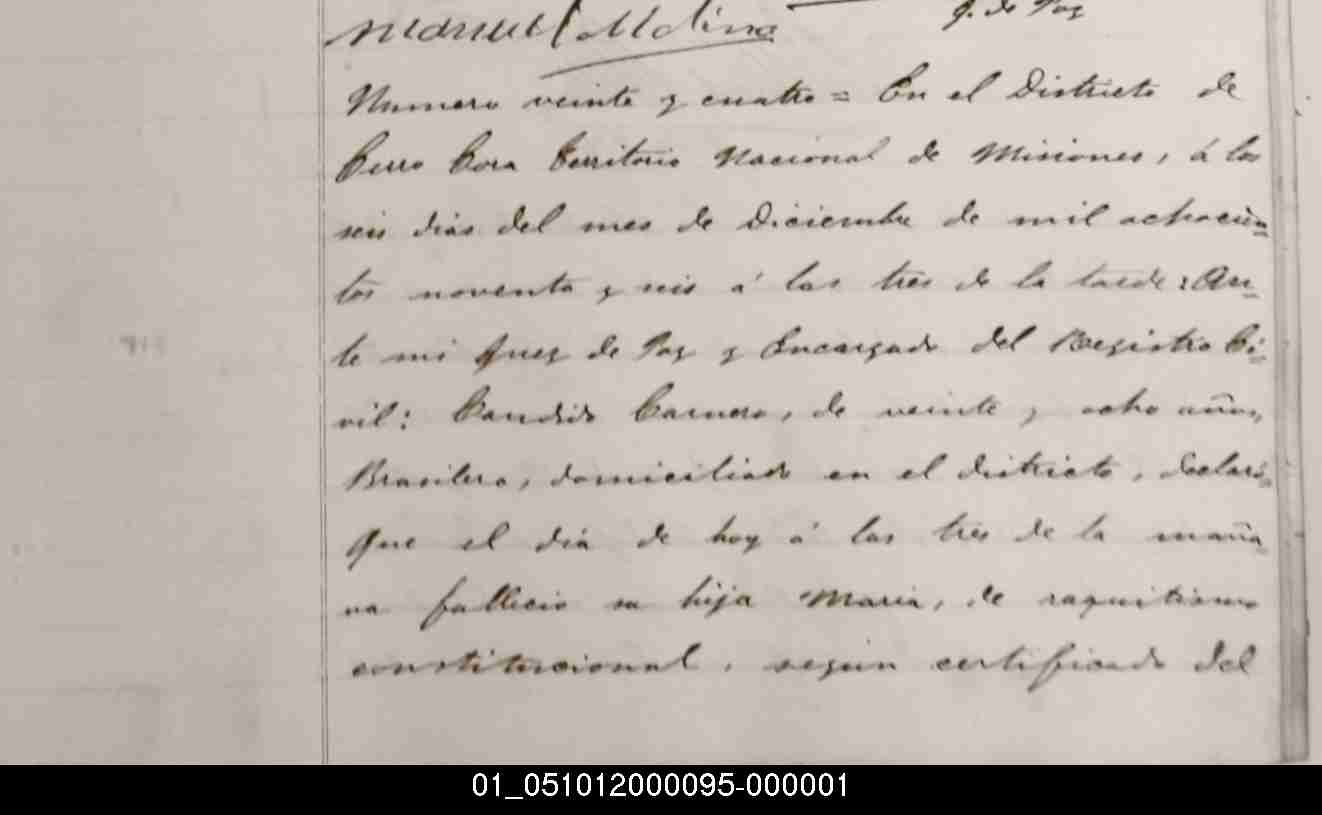 Manuel Molina
J. de Paz
Numero veinte y cuatro = En el Districto de
Cerro Cora Territorio Nacional de Misiones, á los
seis dias del mes de Diciembre de mil ochocien=
tos noventa y seis á las tres de la tarde: An=
te mi Juez de Paz y Encargado del Registro Ci=
vil: Candido Carnero, de veinte y ocho años,
Brasilero, domiciliado en el districto, declaró,
que el dia de hoy á las tres de la maña
na fallecio su hija Maria, de raquitismo
constitucional, según certificado del
01_051012000095-000001